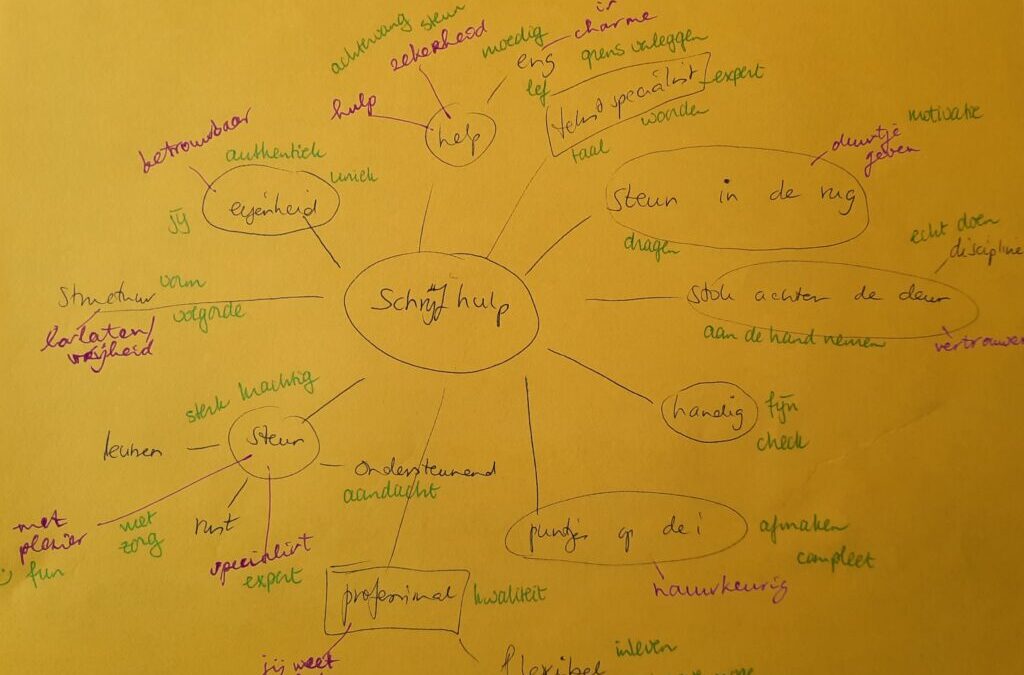 achtervang steun
zekerheid
hulp
help
moedig
eng
charme
grens verleggen
lef
tekst specialist
expert
woorden
taal
betrouwbaar
authentiek
uniek
eigenheid
jij
steun in de rug
duwtje
geven
motivatie
dragen
echt doen
discipline
stok achter de deur
aan de hand nemen
vertrouwen
Schrijfhulp
Structuur
vorm
volgorde
loslaten/
vrijheid
sterk krachtig
steun
leunen
ondersteunend
aandacht
rust
met
plezier
met
zorg
fun
specialist
expert
handig
fijn
check
puntjes op de i
afmaken
compleet
nauwkeurig
professional
kwaliteit
jij weet
flexibel
inleven